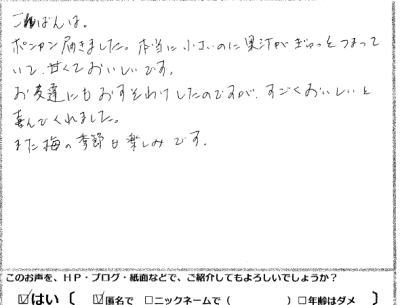 こんばんは。
ポンカン届きました。本当に小さいのに果汁がぎゅっとつまって
いて、甘くておいしいです。
お友達にもおすそわけしたのですが、すごくおいしいと
喜んでくれました。
また梅の季節も楽しみです。
このお声を、HP・ブログ・紙面などで、ご紹介してもよろしいでしょうか?
☑はい 〔 ☑匿名で □ニックネームで( ) □年齢はダメ 〕